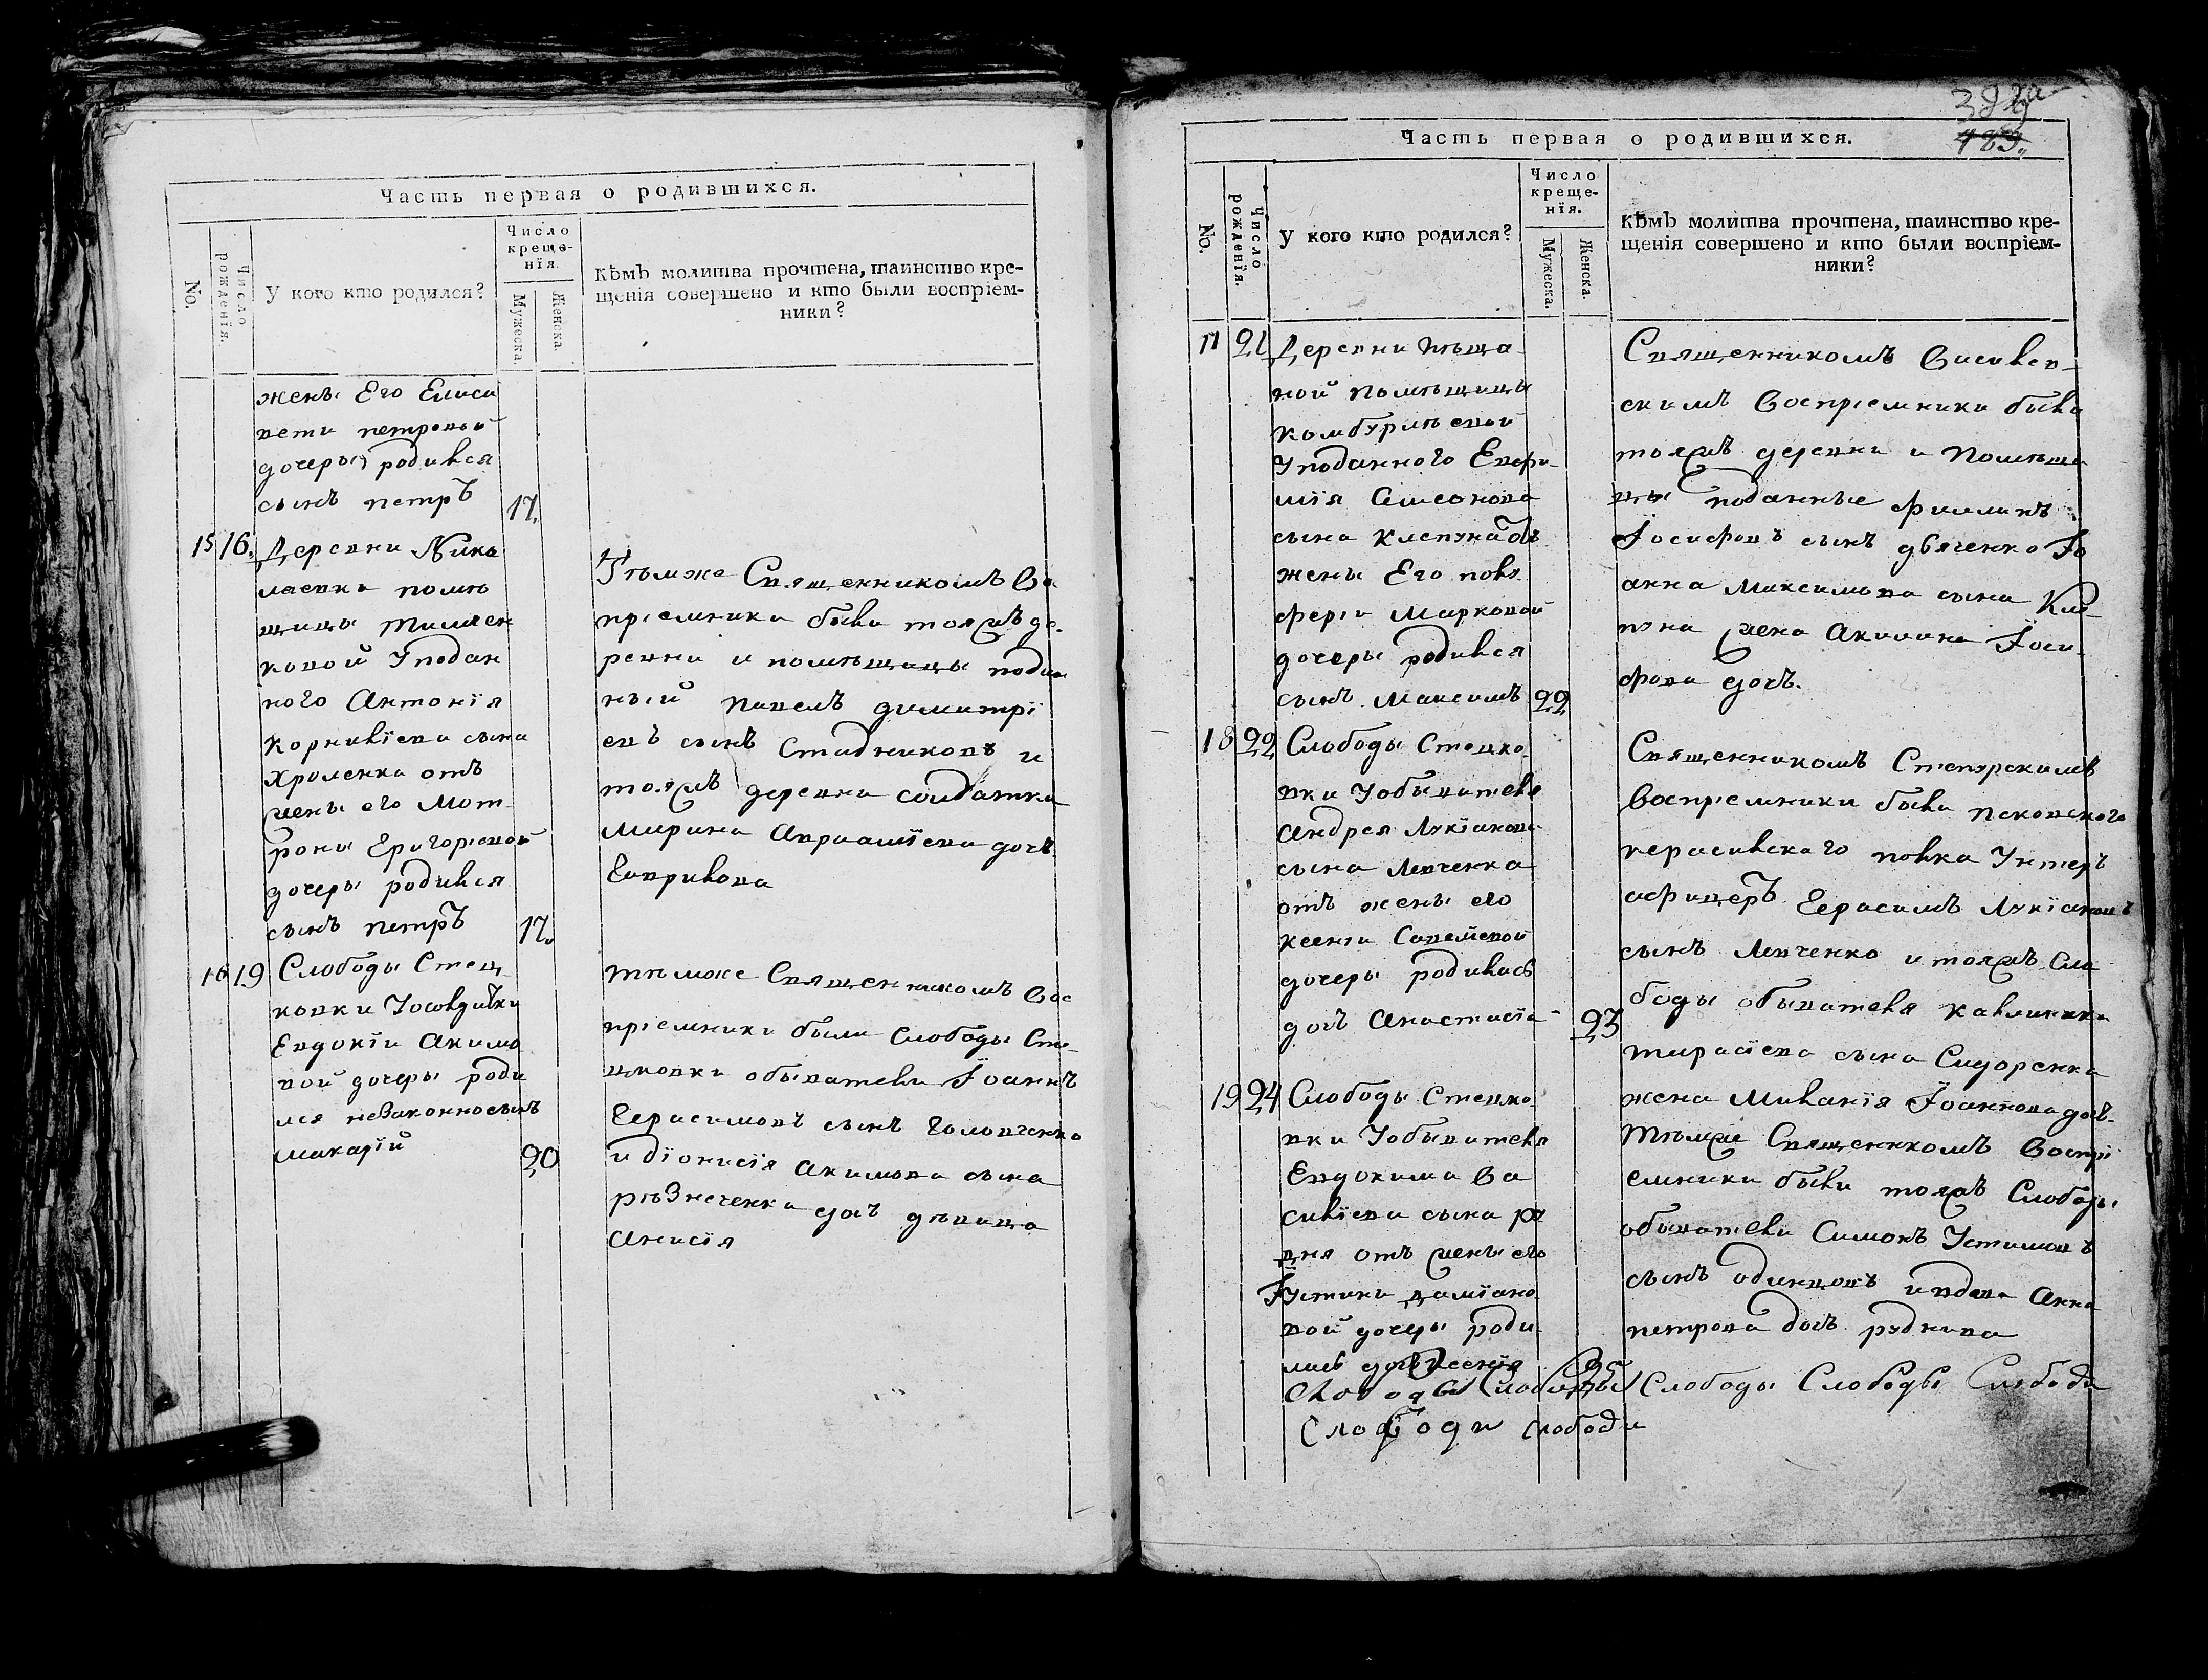 Часть первая о родившихся.
No.
Число рожденїя.
У кого кто родился?
Число
креще-
нїя.
Мужеска.
Женска.
Кѣмъ молитва прочтена, таинство кре-
щенїя совершено и кто были воспрїем-
ники?
жены Его Елиса
вети петровой
дочеры родился
сынъ петръ 17.
15 16. Деревни Нико
лаевки помѣ
щицы
ковой Уподан
ного Антонїя
Корнилїева сына
Хроленка отъ
жены его Мот
роны Григорїевой
дочеры родился
сынъ петръ 17.
Тѣмже Священникомъ Во
прїемники были тояжъ де
ревни и помѣщицы подан
ный павелъ димитрї
евъ сынъ Стадниковъ и
тояжъ деревни солдатка
Марина Авраамїева дочь
Гаврилова
16 19 Слободы Стец
ковки
Евдокїи Акимо
вой дочеры роди
лся незаконно сынъ
макарїй 20
тѣмже Священникомъ Вос
прїемники были Слободы Сте
цковки обыватели Їоаннъ
Герасимовъ сынъ Головченко
и дїонисїя Акимова сына
рѣзнеченка дочь дѣвица
Анисїя
Часть первая о родившихся.
392
483.
No.
Число рожденїя.
У кого кто родился?
Число
креще-
нїя.
Мужеска.
Женска.
Кѣмъ молитва прочтена, таинство кре-
щенїя совершено и кто были воспрїем-
ники?
17 21 Деревни пѣща
ной помѣщицы
Камбурлѣевой
Уподанного Евфи
мїя Симеонова
сына Клепуна отъ
жены Его поли
ферїи Марковой
дочеры родился
сынъ Максимъ 22
Священникомъ Василев
скимъ Воспрїемники были
тояжъ деревни и помѣщи
цы поданные филипъ
Їосифовъ сынъ дяченко Їо
анна Максимова сына Кле
пуна жена Акилина Їоси
фова дочь.
18 22 Слободы Стецко
вки Уобывателя
Андрея Лукїанова
сына Левченка
отъ жены его
Ксенїи Савелїевой
дочеры родилась
дочь Анастасїа 23
Священникомъ Степурскимъ
Воспрїемники были псковского
керасирского полка Унтеръ
афицеръ Герасимъ Лукїановъ
сынъ Левченко и тояжъ Сло
боды обывателя
тарасїева сына Сидоренка
жена Миланїя Їоаннова дочь
19 24 Слободы Стецко
вки Уобывателя
Евдокима Ва
силїева сына ру
дня отъ жены его
Їустины дамїано
вой дочеры роди
лась дочь Ксенїя 25
Тѣмже Священикомъ Воспрї
емники были тояжъ Слободы
обыватели Симонъ Устимовъ
сынъ одинцовъ и вдова Анна
петрова дочь руднева
Слободы Слободы Слободы Слободы Слободи
Слободи слободи